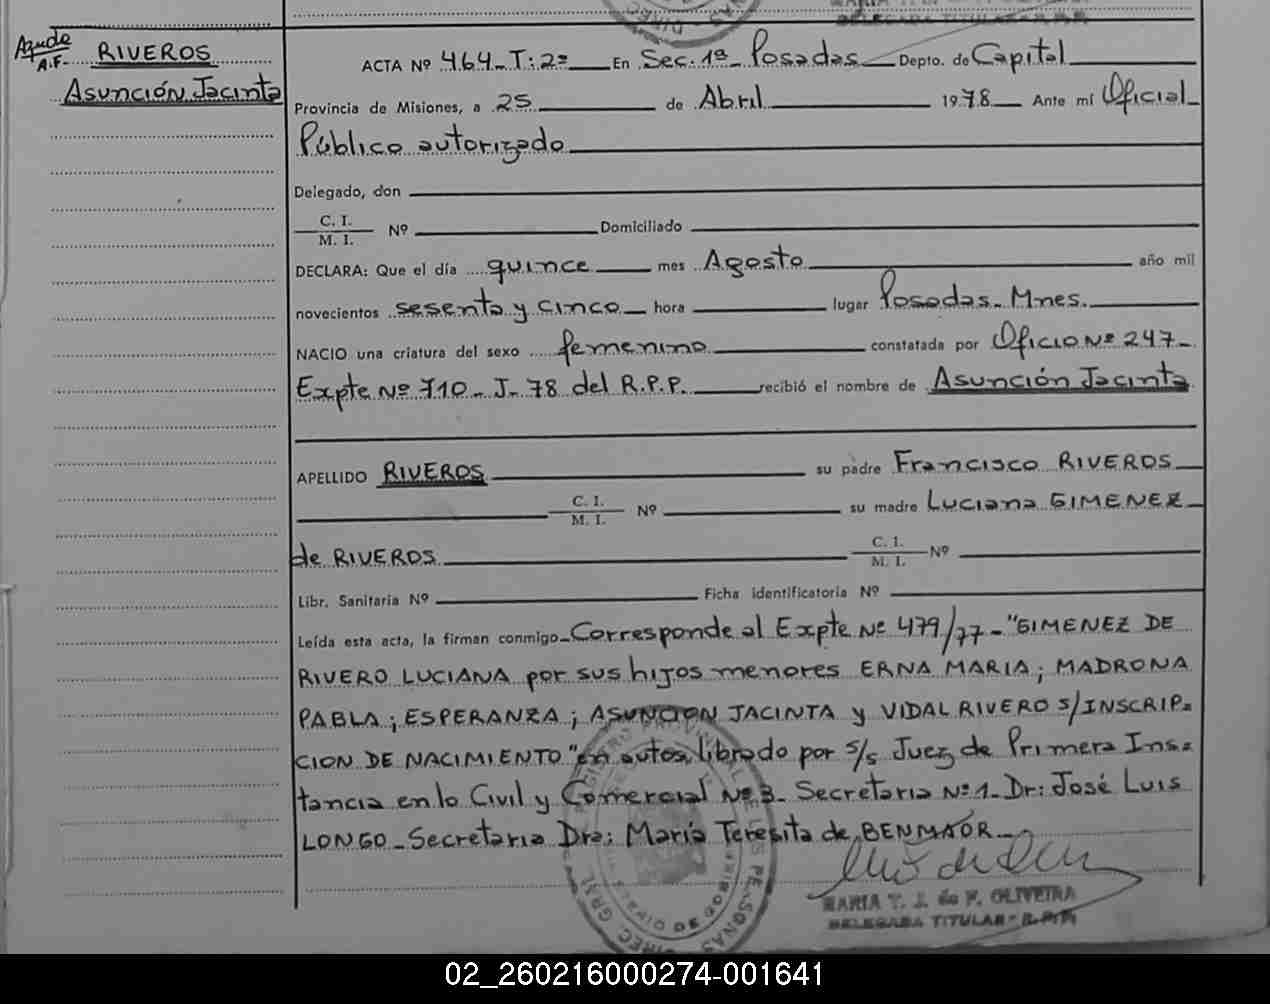 MARIA T. J. de F. OLIVEIRA
DELEGADA TITULAR - R.P.P.
Agudo
A.F.- RIVEROS
Asunción Jacinta
ACTA Nº 464-T: 2º En Sec. 1ª Posadas Depto. de Capital
Provincia de Misiones, a 25 de Abril 1978 Ante mí Oficial
Público autorizado
Delegado, don
C. I.
M. I. Nº Domiciliado
DECLARA: Que el día quince mes Agosto año mil
novecientos sesenta y cinco hora lugar Posadas. Mnes.
NACIO una criatura del sexo femenino constatada por Oficio Nº 247-
Expte Nº 710-J-78 del R.P.P. recibió el nombre de Asunción Jacinta
APELLIDO RIVEROS su padre Francisco RIVEROS
C. I.
M. I. Nº su madre Luciana GIMENEZ
de RIVEROS C. I.
M. I. Nº
Libr. Sanitaria Nº Ficha identificatoria Nº
Leída esta acta, la firman conmigo-Corresponde al Expte Nº 479/77-"GIMENEZ DE
RIVERO LUCIANA por sus hijos menores ERNA MARIA; MADRONA
PABLA; ESPERANZA; ASUNCION JACINTA y VIDAL RIVERO S/INSCRIP=
CION DE NACIMIENTO" en autos librado por S/S Juez de Primera Ins=
tancia en lo Civil y Comercial Nº 3- Secretaria Nº 1- Dr: José Luis
LONGO-Secretaria Dra: María Teresita de BENMAOR-
MARIA T. J. de F. OLIVEIRA
DELEGADA TITULAR - R.P.P.
02_260216000274-001641